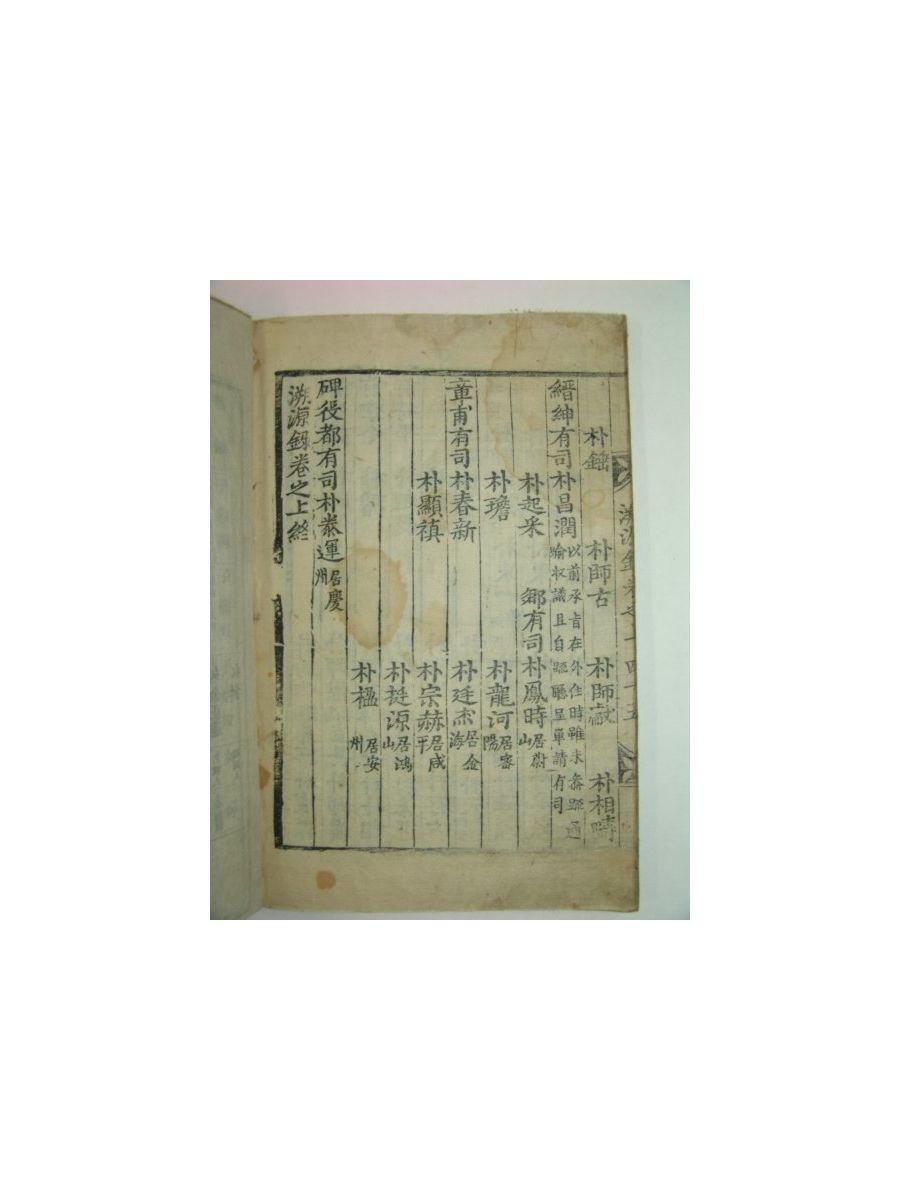 溯源錄卷之上 四十五
朴鎰 朴師古 朴師 朴相疇
縉紳有司朴昌潤 以前承旨在外任時雖未參疏通
喩收議且自疏廳呈單請有司
朴起采 鄕有司朴鳳時居蔚山
朴瑨 朴龍河居密陽
章甫有司朴春新 朴廷杰居金海
朴顯禛 朴宗赫居咸平
朴挺源居鴻山
朴楹 居安州
碑役都有司朴泰運居慶州
溯源錄卷之上終